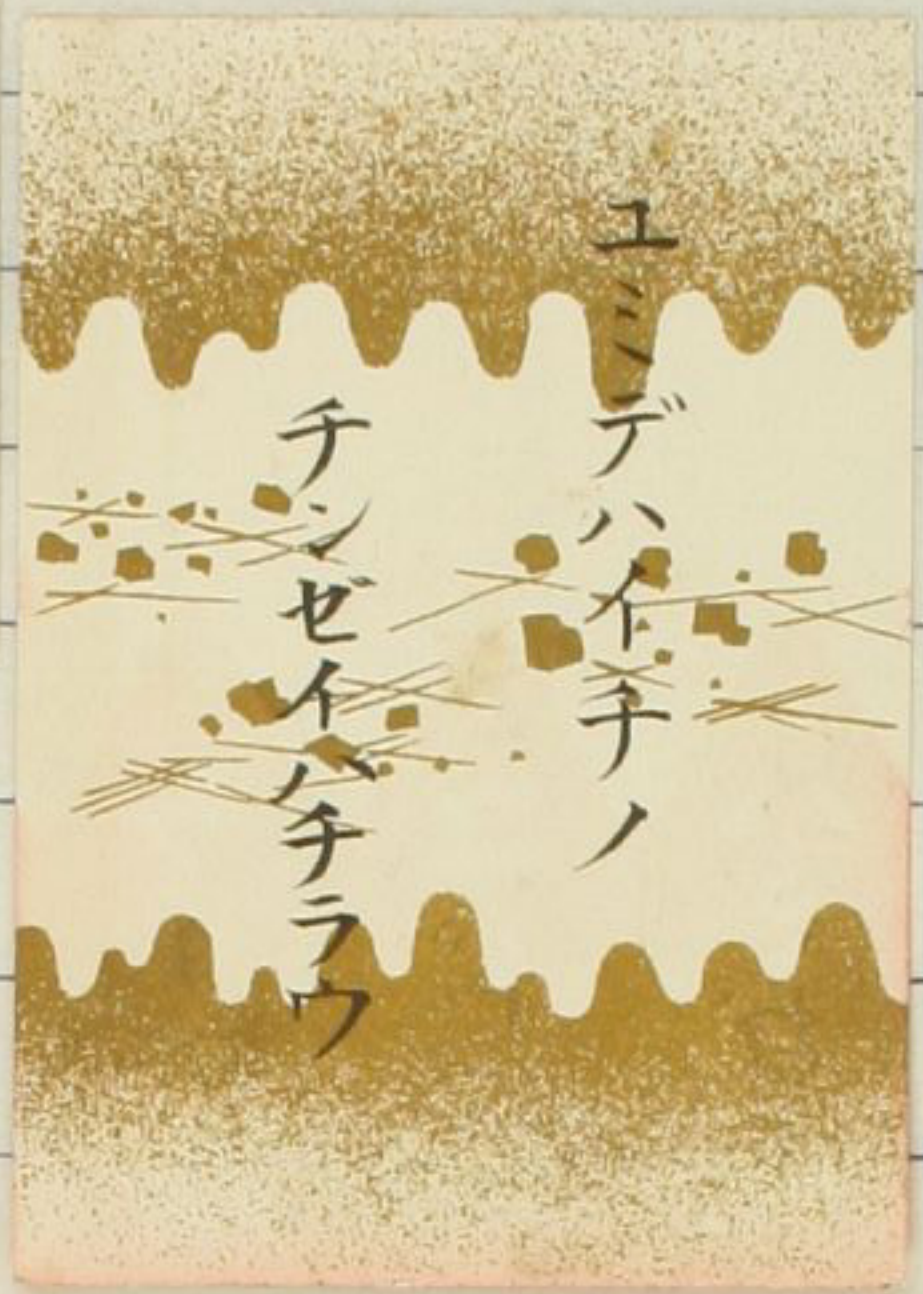 ユミデハイチノ
チンゼイハチラウ